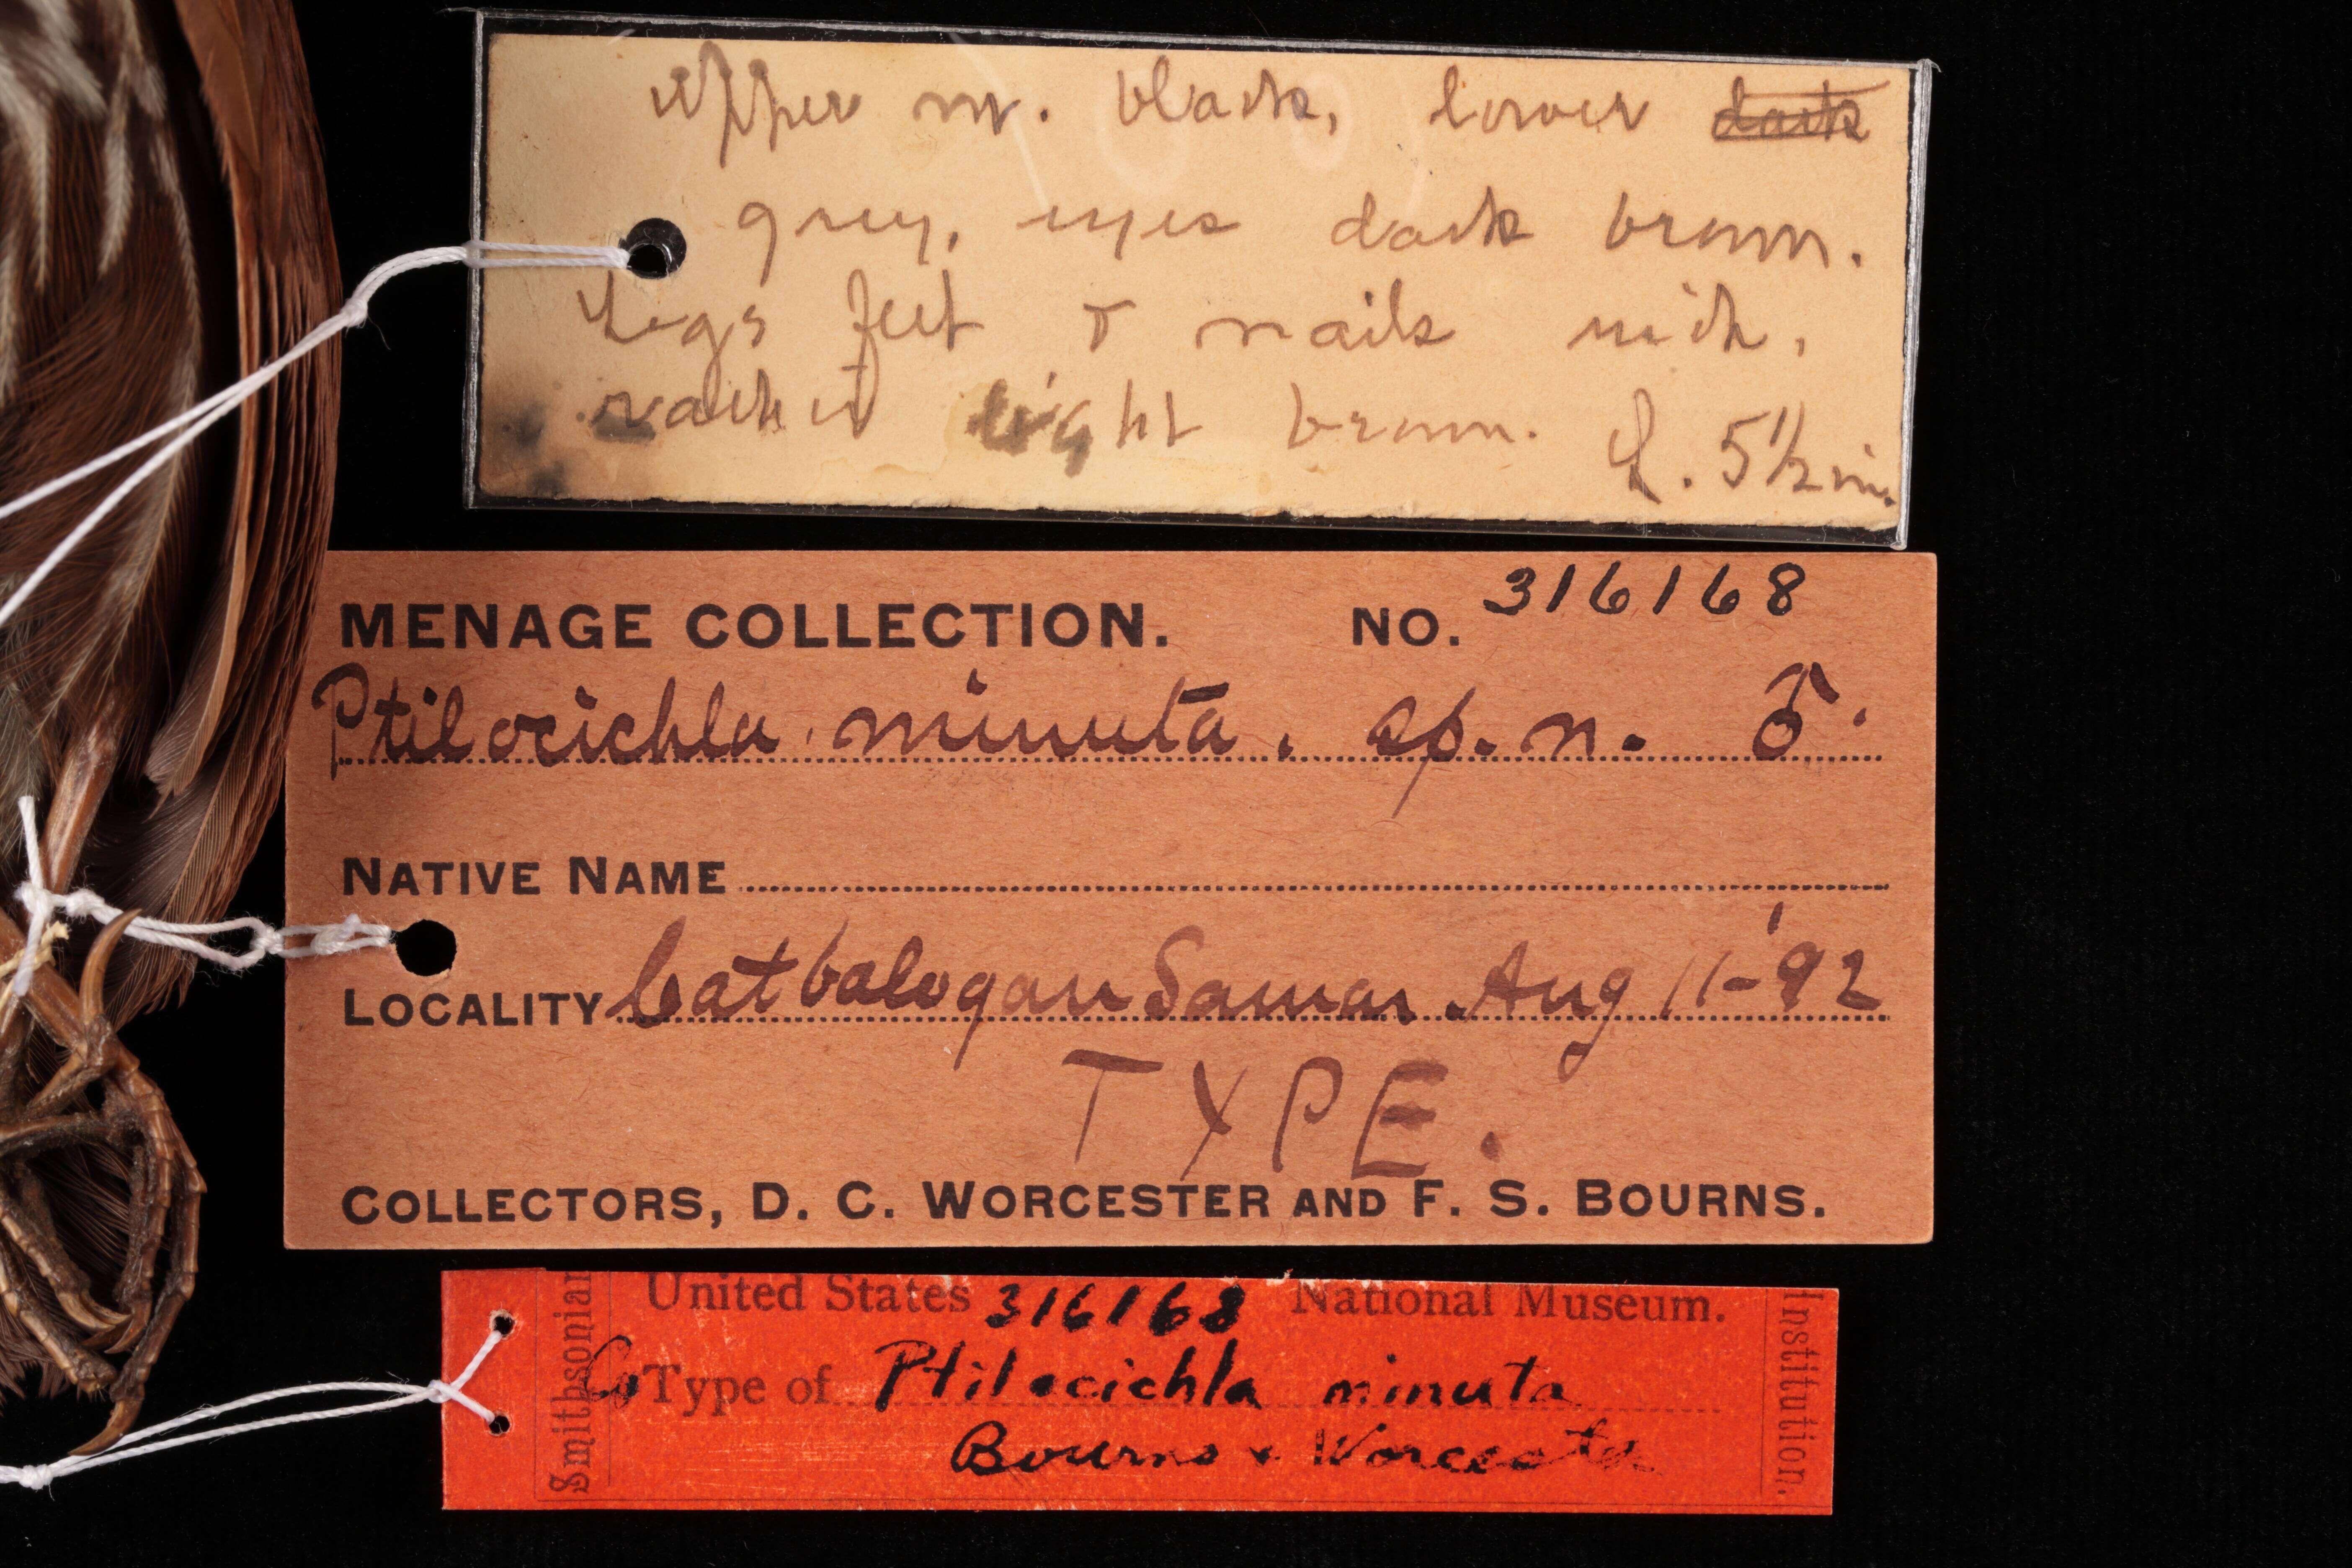 upper m. black, lower dark
grey, eyes dark brown.
Legs feet & nails
rather light brown. L. 5 1/2 in.
MENAGE COLLECTION. NO. 316168
Ptilocichla minuta. sp. n. ♂.
NATIVE NAME
LOCALITY Catbalogan Samar. Aug 11-'92
TYPE.
COLLECTORS, D. C. WORCESTER AND F. S. BOURNS.
Smithsonian
United States 316168 National Museum.
Co Type of Ptilocichla minuta
Bourns & Worcester
Institution.